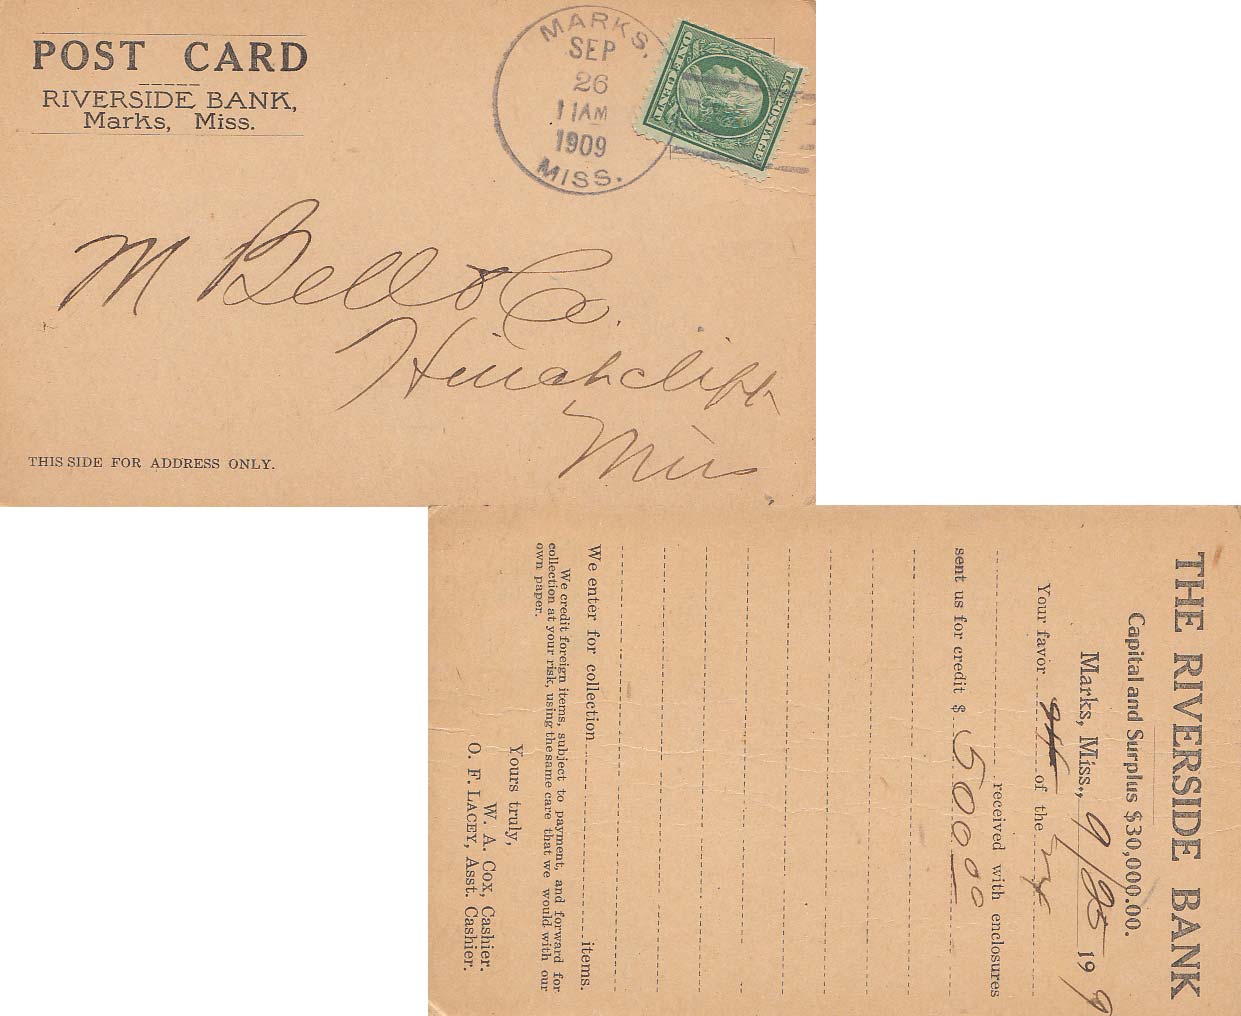 POST CARD
RIVERSIDE BANK,
Marks, Miss.
MARKS,
SEP
26
11 AM
1909
MISS.
U.S. POSTAGE
M Bell & Co.
Hinchcliff
Miss
THIS SIDE FOR ADDRESS ONLY.
THE RIVERSIDE BANK
Capital and Surplus $30,000.00.
Marks, Miss., 9/25 19 9
Your favor of the
received with enclosures
sent us for credit $ 500 00
We enter for collection items.
We credit foreign items, subject to payment, and forward for
collection at your risk, using the same care that we would with our
own paper.
Yours truly,
W. A. COX, Cashier.
O. F. LACEY, Asst. Cashier.